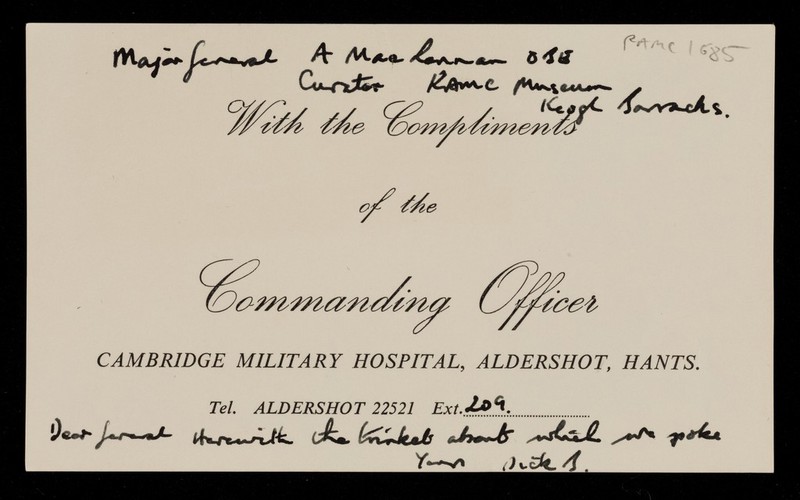 RAMC 1685
Major General A MacLennan OBE
Curator RAMC Museum
Keogh Barracks.
With the Compliments
of the
Commanding Officer
CAMBRIDGE MILITARY HOSPITAL, ALDERSHOT, HANTS.
Tel. ALDERSHOT 22521 Ext. 209.
Dear General Herewith the trinkets about which we spoke
Yours Dick